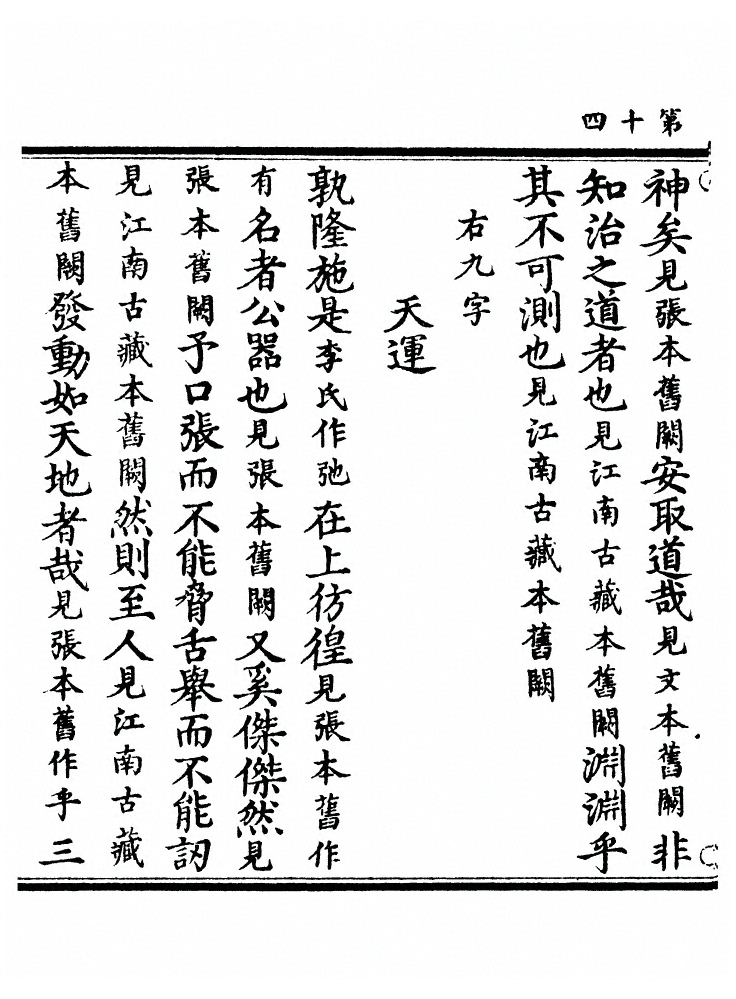 第十四
神矣見張本舊闕安取道哉見文本舊闕非
知治之道者也見江南古藏本舊闕淵淵乎
其不可測也見江南古藏本舊闕
右九字
天運
孰隆施是李氏作弛在上彷徨見張本舊作
有名者公器也見張本舊闕又奚傑傑然見
張本舊闕予口張而不能脅舌舉而不能訒
見江南古藏本舊闕然則至人見江南古藏
本舊闕發動如天地者哉見張本舊作乎三